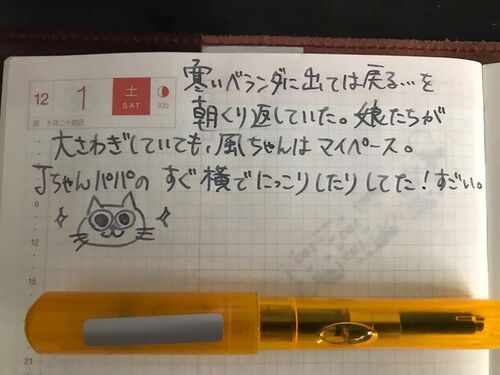 12 1 土 SAT 335
旧 十月二十四日
寒いベランダに出ては戻る…を
朝くり返していた。娘たちが
大さわぎしていても、風ちゃんはマイペース。
Jちゃんパパのすぐ横でにっこりしたりしてた!すごい。
9
12
15
18
21